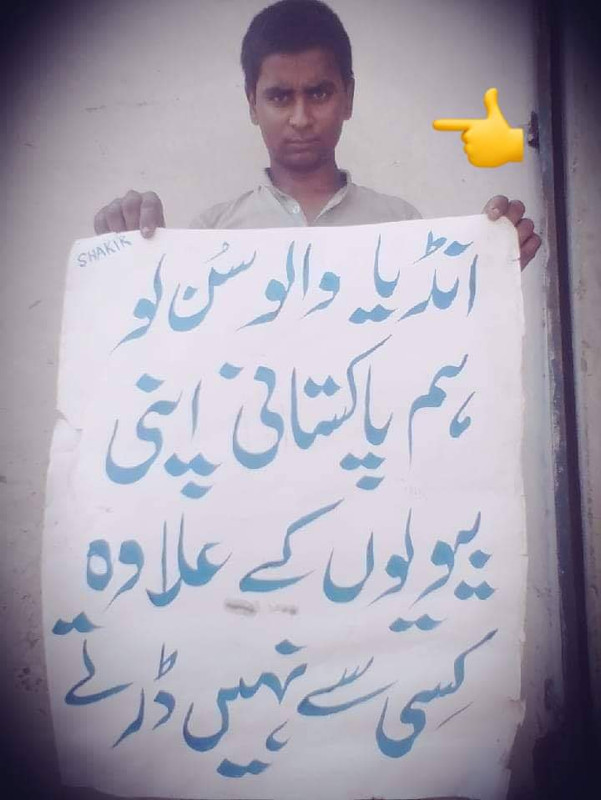 SHAKIR
انڈیا والو سُن لو
ہم پاکستانی اپنی
بیویوں کے علاوہ
کِسی سے نہیں ڈرتے